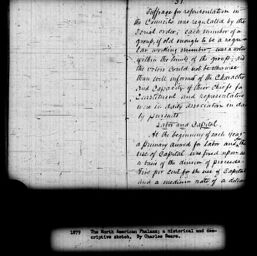 Suffrage for representation in
the Councils was regulated by the
same order; each member of a
group, if old enough to be a regu-
lar working member, was a voter
within the limits of the group; and
the voters could not be otherwise
than well informed of the Character
and Capacity of their Chiefs for
Constituent and representative
were in daily association in dai-
ly pursuits
Labor and Capital.
At the beginning of each year
a primary award for labor and the
use of Capital was fixed upon as
a basis of the division of proceeds.
Five per cent for the use of Capital
and a medium rate of a dollar
1879 The North American Phalanx; a historical and des-
criptive sketch. By Charles Sears.